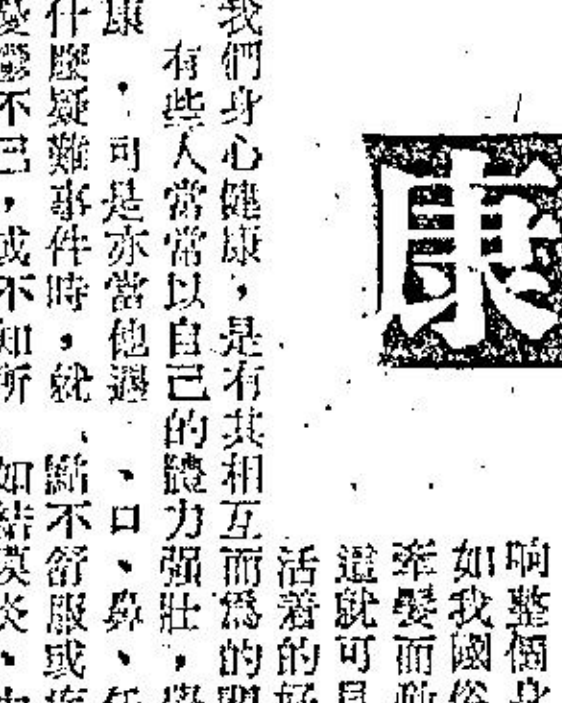 康
响整個身
如我國俗
牽髮而動
這就可見
活着的好
我們身心健康，是有其相互而爲的關
有些人當常以自己的體力强壯，學
康．可是亦當他遇、口、鼻、任
什麽疑難事件時，就
點不舒服或
不已，或不知所
如結膜炎、